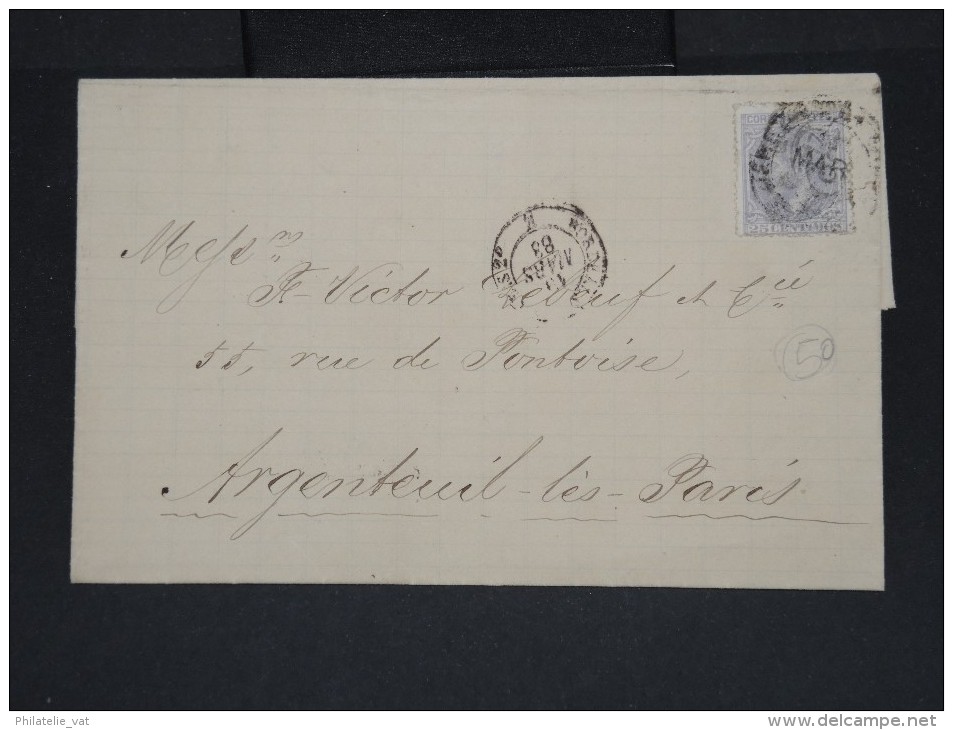 COR
MAR
25 CENTIMOS
Mess.rs
Fs Victor & Cie
55, rue de Pontoise,
Argenteuil-lès-Paris
MARS
83
50
Philatelie_vat
www.delcampe.net